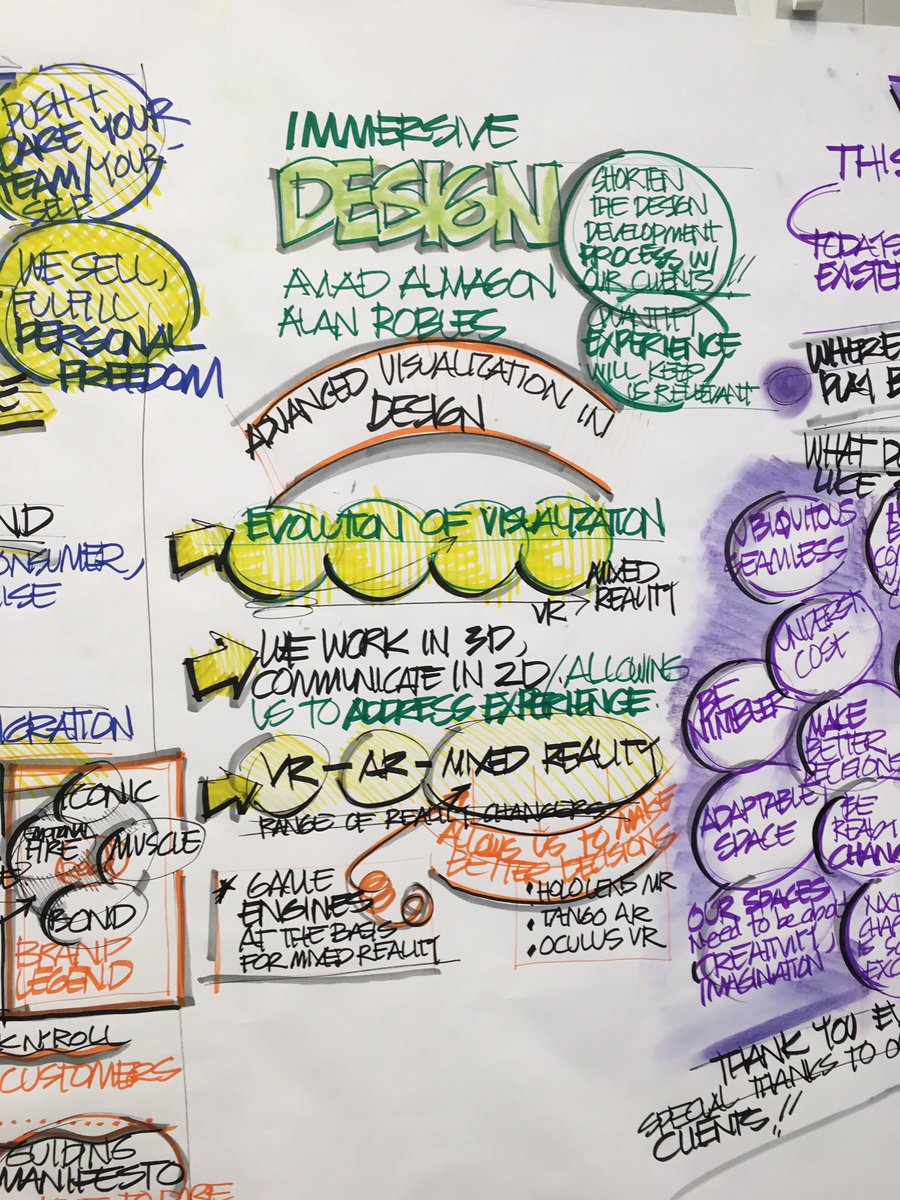 PUSH +
DARE YOUR
TEAM/YOUR-
SELF
WE SELL,
FULFILL
PERSONAL
FREEDOM
CONSUMER,
ICONIC
EMOTIONAL
FIRE
MUSCLE
BOND
BRAND
LEGEND
CUSTOMERS
BUILDING
MANIFESTO
IMMERSIVE
DESIGN
AVIAD ALMAGOR
ALAN ROBLES
SHORTEN
THE DESIGN
DEVELOPMENT
PROCESS W/
OUR CLIENTS!!
QUANTIFY
EXPERIENCE
WILL KEEP
US RELEVANT
ADVANCED VISUALIZATION IN
DESIGN
EVOLUTION OF VISUALIZATION
VR → MIXED
REALITY
WE WORK IN 3D,
COMMUNICATE IN 2D/ALLOWING
US TO ADDRESS EXPERIENCE.
VR-AR-MIXED REALITY
RANGE OF REALITY CHANGERS
ALLOWS US TO MAKE
BETTER DECISIONS
• HOLOLENS MR
• TANGO AR
• OCULUS VR
* GAME
ENGINES
AT THE BASIS
FOR MIXED REALITY
TODAY'S
WHERE
PLAY
WHAT
LIKE
UBIQUITOUS
SEAMLESS
UNDERST.
COST
BE
NIMBLER
MAKE
BETTER
DECISIONS
ADAPTABLE
SPACE
BE
READY
CHAN
OUR SPACES
need to be about
CREATIVITY,
IMAGINATION
THANK YOU
SPECIAL THANKS TO
CLIENTS!!